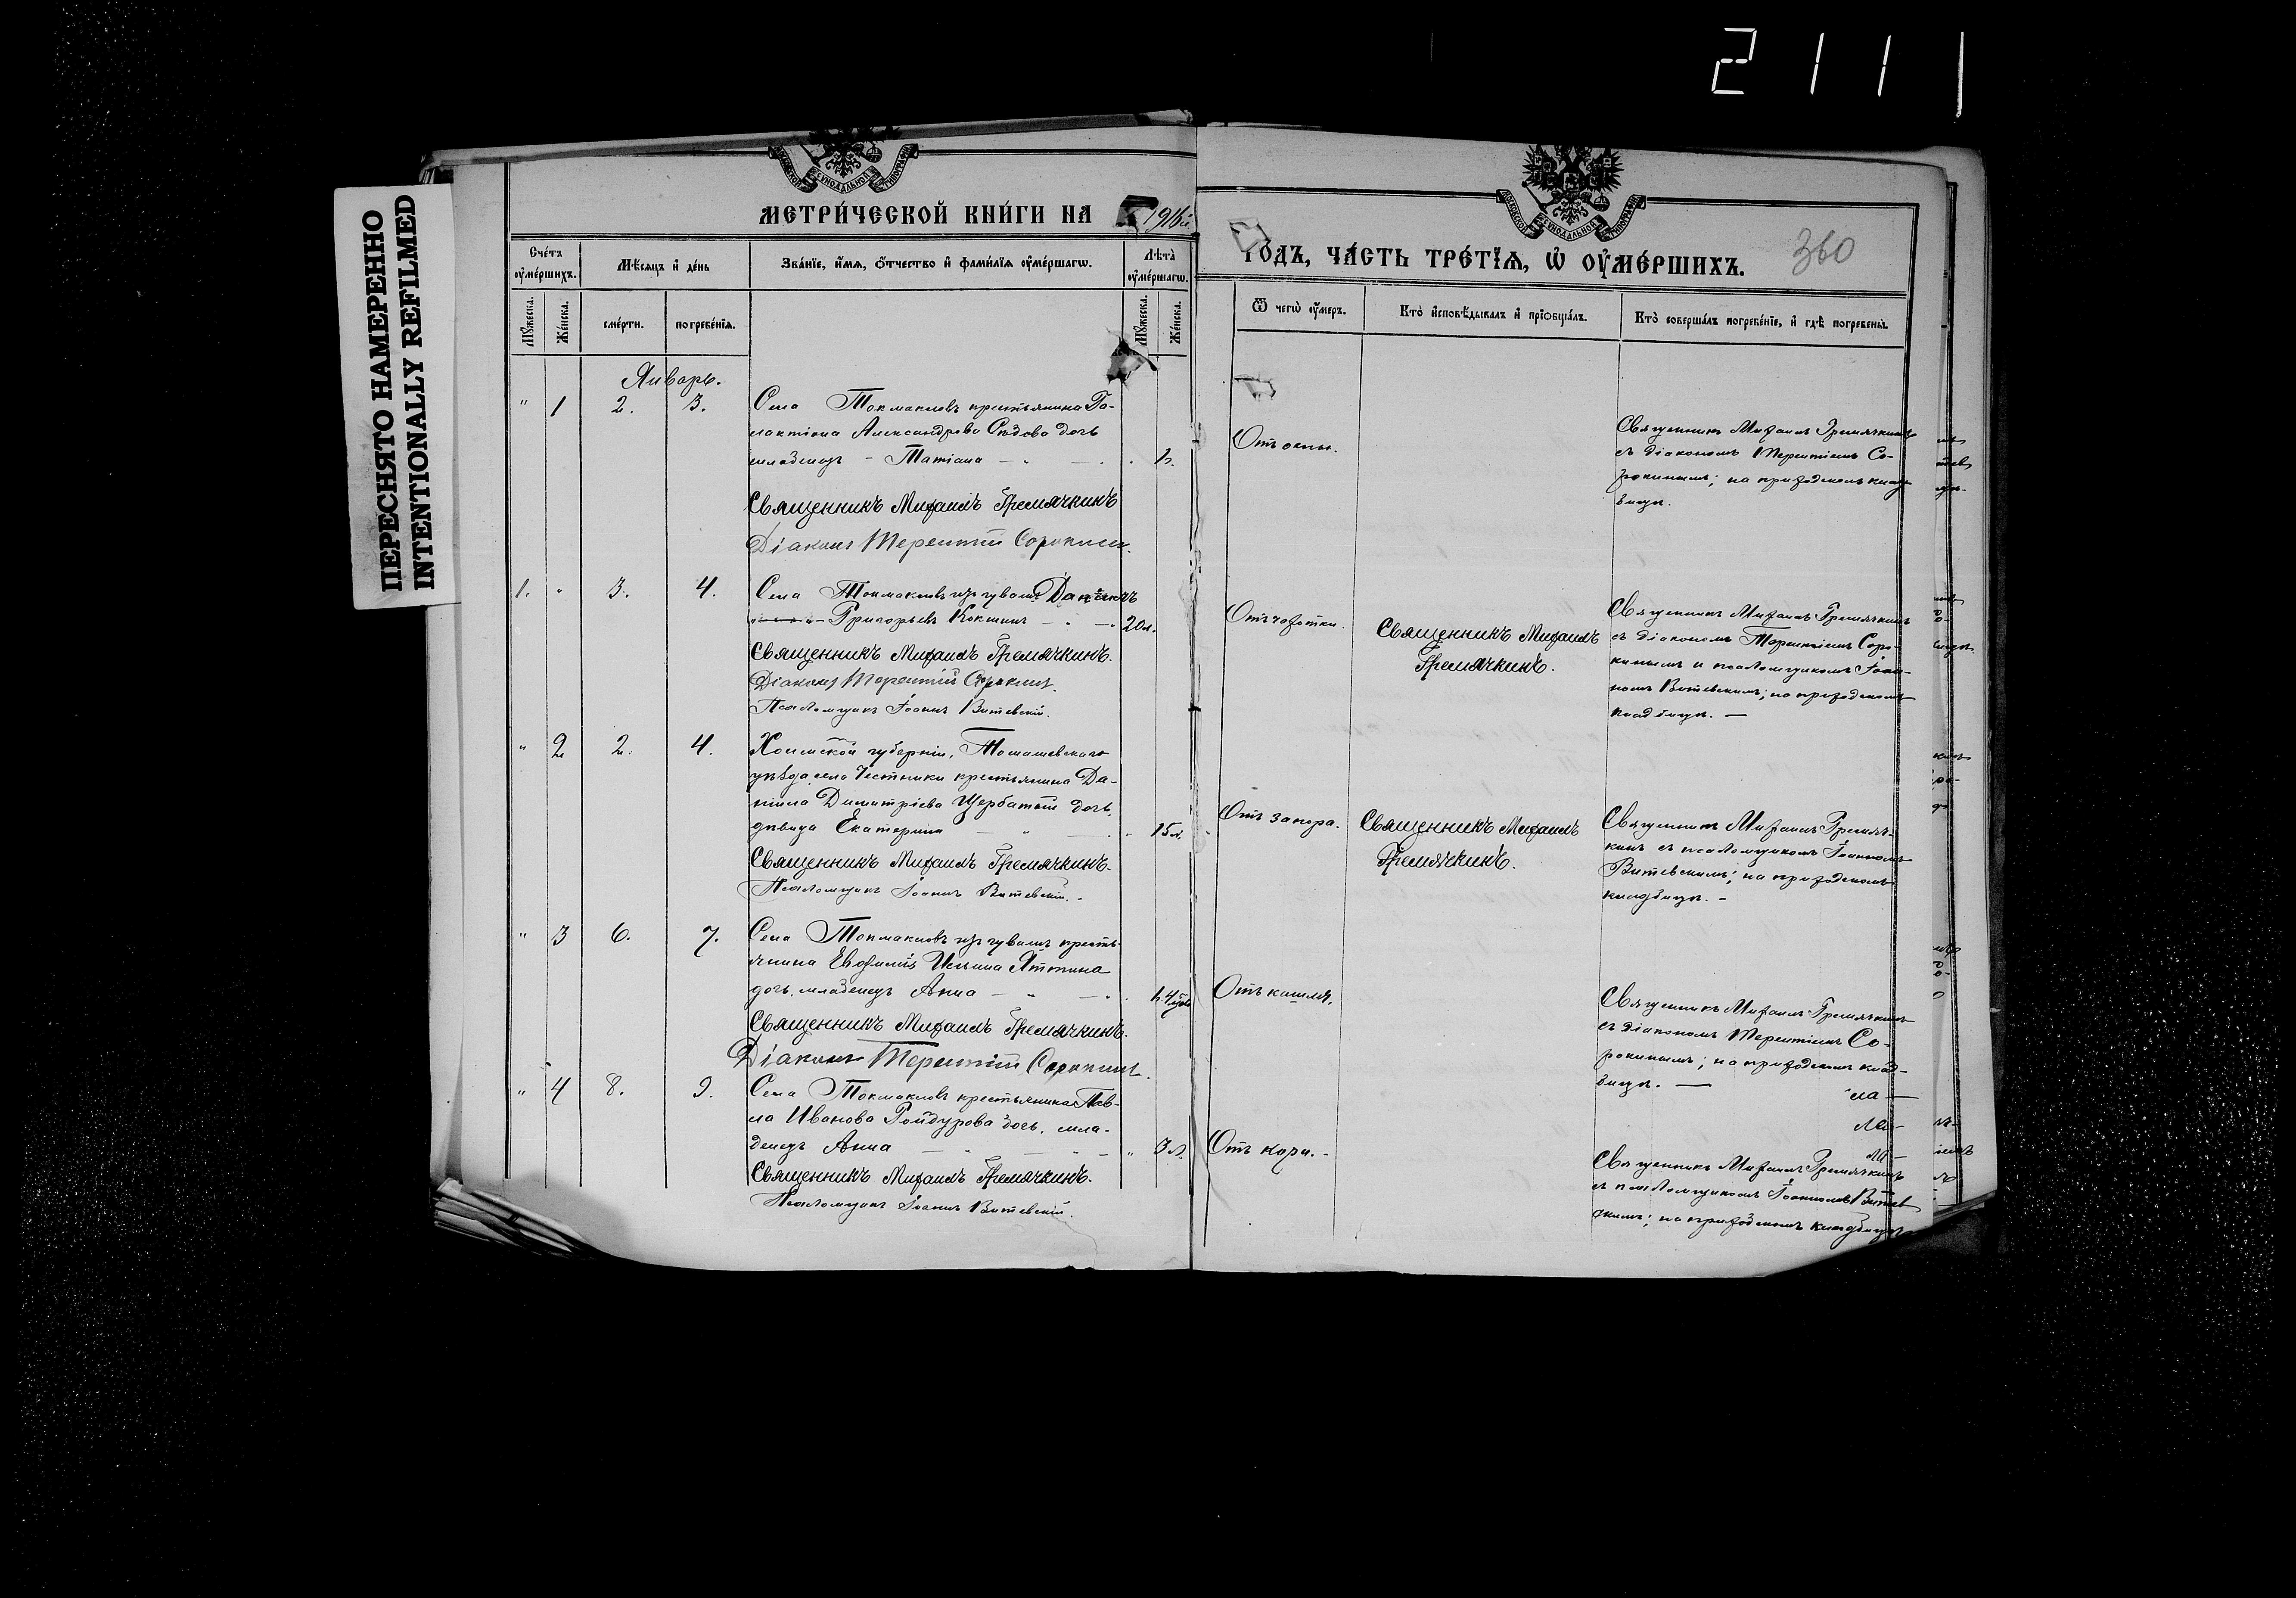 2111
ПЕРЕСНЯТО НАМЕРЕННО
INTENTIONALLY REFILMED
МЕТРИ́ЧЕСКОЙ КНИ́ГИ НА 1916й
ГОДЪ, ЧА́СТЬ ТРЕ́ТЇѦ, Ѡ҆ ОУ҆МЕ́РШИХЪ.
360
Сче́тъ оу҆ме́ршихъ.
Мѣ́сѧцъ и҆ де́нь
Зва́нїе, и҆́мѧ, ѻ҆́тчество и҆ фами́лїѧ оу҆ме́ршагѡ.
Лѣ́та̀ оу҆ме́ршагѡ.
Му́жеска.
Же́нска.
сме́рти.
погребе́нїѧ.
Му́жеска.
Же́нска.
Ѿ чегѡ̀ оу҆́меръ.
Кто̀ и҆сповѣ́дывалъ и҆ прїѡбща́лъ.
Кто̀ соверша́лъ погребе́нїе, и҆ гдѣ̀ погребены̀.
Январь.
" 1 2. 3.
Села Токмаклов крестьянина Га-
лактіона Александрова Сѣдова дочь
младенецъ - Татіана 1.
Священникъ Михаилъ Гремячкинъ
Діаконъ Терентій Сорокинъ.
Отъ оспы.
Священникъ Михаилъ Гремячкинъ
съ діакономъ Терентіемъ Со-
рокинымъ; на приходскомъ клад-
бищѣ.
1. " 3. 4.
Села Токмаклов изъ чувашъ
Григорьевъ Кокшинъ 20л.
Священникъ Михаилъ Гремячкинъ.
Діаконъ Терентій Сорокинъ.
Псаломщикъ Іоаннъ Витевскій.
Отъ чахотки.
Священникъ Михаилъ
Гремячкинъ.
Священникъ Михаилъ Гремячкинъ
съ діакономъ Терентіемъ Соро-
кинымъ и псаломщикомъ Іоан-
номъ Витевскимъ; на приходскомъ
кладбищѣ. —
" 2 2. 4.
Холмской губерніи, Томашевскаго
уѣзда села Честники крестьянина Да-
ніила Димитріева Щербатый дочь,
дѣвица Екатерина " 15л.
Священникъ Михаилъ Гремячкинъ.
Псаломщикъ Іоаннъ Витевскій. -
Отъ запора.
Священникъ Михаилъ
Гремячкинъ.
Священникъ Михаилъ Гремяч-
кинъ съ псаломщикомъ Іоанномъ
Витевскимъ; на приходскомъ
кладбищѣ. -
" 3 6. 7.
Села Токмаклов изъ чувашъ кресть-
янина Евфимія Ильина Яттина
дочь, младенецъ Анна
Священникъ Михаилъ Гремячкинъ.
Діаконъ Терентій Сорокинъ.
Отъ кашля.
Священникъ Михаилъ Гремячкинъ
съ діакономъ Терентіемъ Со-
рокинымъ; на приходскомъ клад-
бищѣ. —
" 4 8. 9.
Села Токмаклов крестьянина Пав-
ла Иванова Пойдурова дочь, мла-
денецъ Анна " 3л.
Священникъ Михаилъ Гремячкинъ.
Псаломщикъ Іоаннъ Витевскій.
Отъ кори. -
Священникъ Михаилъ Гремячкинъ
съ псаломщикомъ Іоанномъ Витев
скимъ; на приходскомъ кладбищѣ